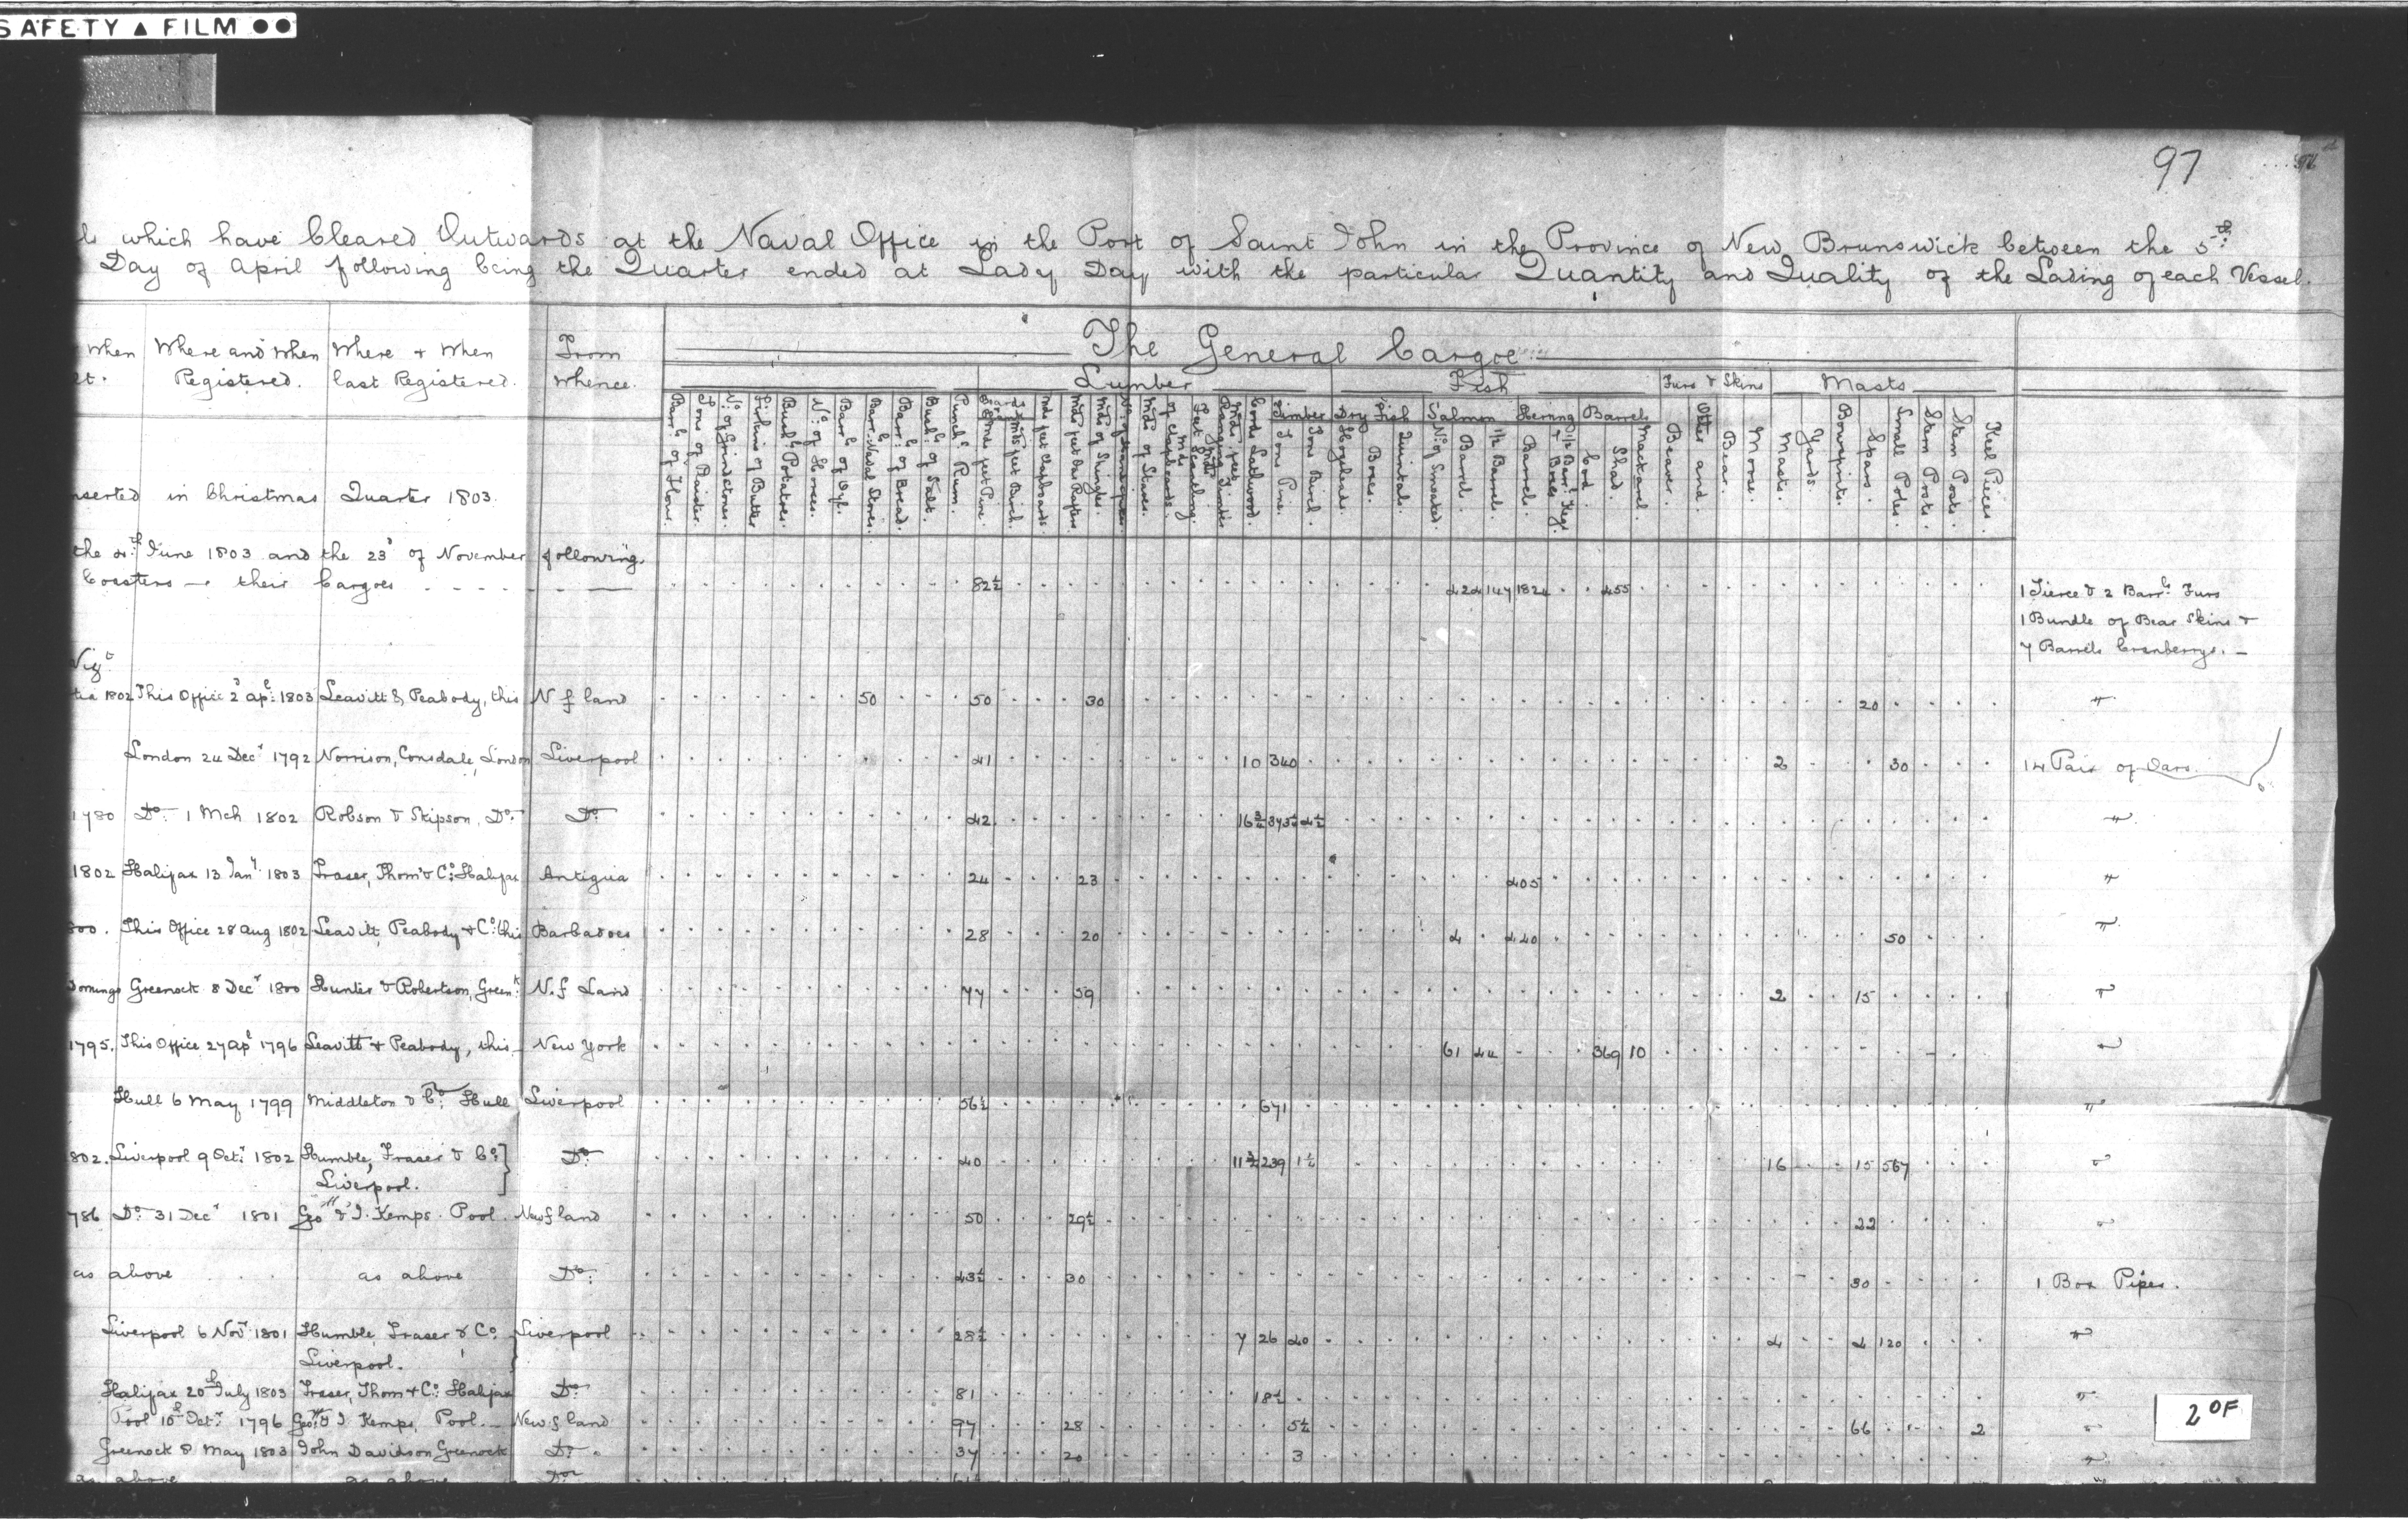 SAFETY ▲ FILM ●●
97
which have Cleared Outwards at the Naval Office in the Port of Saint John in the Province of New Brunswick between the 5th
Day of April following being the Quarter ended at Lady Day with the particular Quantity and Quality of the Lading of each Vessel.
When Where and When Where & When From The General Cargoe
Registered. last Registered. Whence.
Lumber Fish Furs & Skins Masts
Timber Dry Fish Salmon Herring Barrels
Barrs of Flour.
Tons of Plaister.
No. of Grindstones.
Firkins of Butter
Bushs Potatoes.
No. of Horses.
Barrs of Oyl.
Barrs Naval Stores.
Barrs of Bread.
Bushs of Salt.
Punchs Rum.
feet Pine.
feet Birch.
feet Clapboards.
Mds feet Oar Rafters
Mds of Shingles.
Mds of Staves.
of Clapboards.
Feet Scantling.
Cords Lathwood.
Tons Pine.
Tons Birch.
Hogsheads.
Boxes.
Quintals.
No. of Smoaked.
Barrels.
1/2 Barrels.
Barrels.
1/2 Barrs Kegs & Boxes
Cod.
Shad.
Mackarel.
Beaver.
Otter and
Bear.
Moose.
Masts.
Yards.
Bowsprits.
Spars.
Small Poles.
Stern Posts.
Stem Posts.
Keel Pieces.
nserted in Christmas Quarter 1803.
the 4th June 1803 and the 23d of November following.
Coasters — their Cargoes 82½ 424 147 1824 455 1 Tierce & 2 Barrs Furs
1 Bundle of Bear Skins &
7 Barrels Cranberrys. —
Vizt
1802 This Office 2d apl 1803 Leavitt & Peabody, this N f land 50 50 30 20 "
London 24 Decr 1792 Norrison, Consdale, London Liverpool 41 10 340 2 30 14 Pair of Oars.
1780 Do 1 Mch 1802 Robson & Skipson, Do. Do 42 16¾ 373½ 4½ "
1802 Halifax 13 Jany 1803 Fraser, Thom & Co. Halifax Antigua 24 23 405 "
800. This Office 28 aug 1802 Leavitt, Peabody & Co. this Barbadoes 28 20 4 440 50 "
Domingo Greenock 8 Decr 1800 Hunter & Robertson, Greenk N.f Land 77 59 2 15 "
1795. This Office 27 apl 1796 Leavitt & Peabody, this New York 61 44 369 10 "
Hull 6 May 1799 Middleton & Co. Hull Liverpool 56½ 671 "
802. Liverpool 9 Octr 1802 Humble, Fraser & Co. Do. 40 11¾ 239 1½ 16 15 567 "
Liverpool.
786 Do 31 Decr 1801 Geo & J. Kemps. Pool. Newfland 50 29½ 22 "
as above as above Do. 43½ 30 30 1 Box Pipes.
Liverpool 6 Novr 1801 Humble, Fraser & Co. Liverpool 28½ 7 26 40 4 4 120 "
Liverpool.
Halifax 20th July 1803 Fraser, Thom & Co. Halifax Do. 81 18½ "
Pool 10th Octr 1796 Geo & J Kemps, Pool. Newfland 97 28 5½ 66 2 "
Greenock 8 May 1803 John Davidson Greenock Do. 37 20 3 "
as above as above Do
2 OF